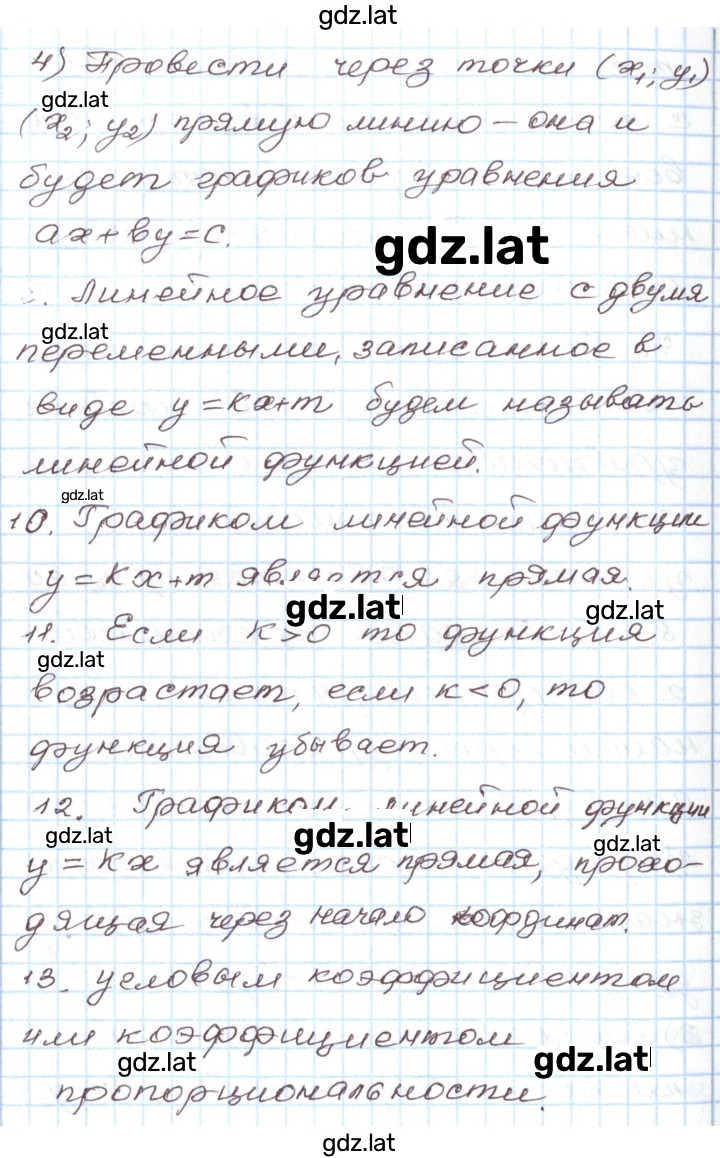 gdz.lat
4) Провести через точки (x₁; y₁)
gdz.lat
(x₂; y₂) прямую линию – она и
будет графиков уравнения
ax+by=c.
gdz.lat
. Линейное уравнение с двумя
gdz.lat
переменными, записанное в
виде y=kx+m будем называть
линейной функцией.
gdz.lat
10. Графиком линейной функции
y=kx+m является прямая.
gdz.lat gdz.lat
11. Если k>0 то функция
gdz.lat
возрастает, если k<0, то
функция убывает.
12. Графиком линейной функции
gdz.lat gdz.lat gdz.lat
y=kx является прямая, прохо-
дящая через начало координат.
13. угловым коэффициентом
или коэффициентом
gdz.lat gdz.lat
пропорциональности.
gdz.lat